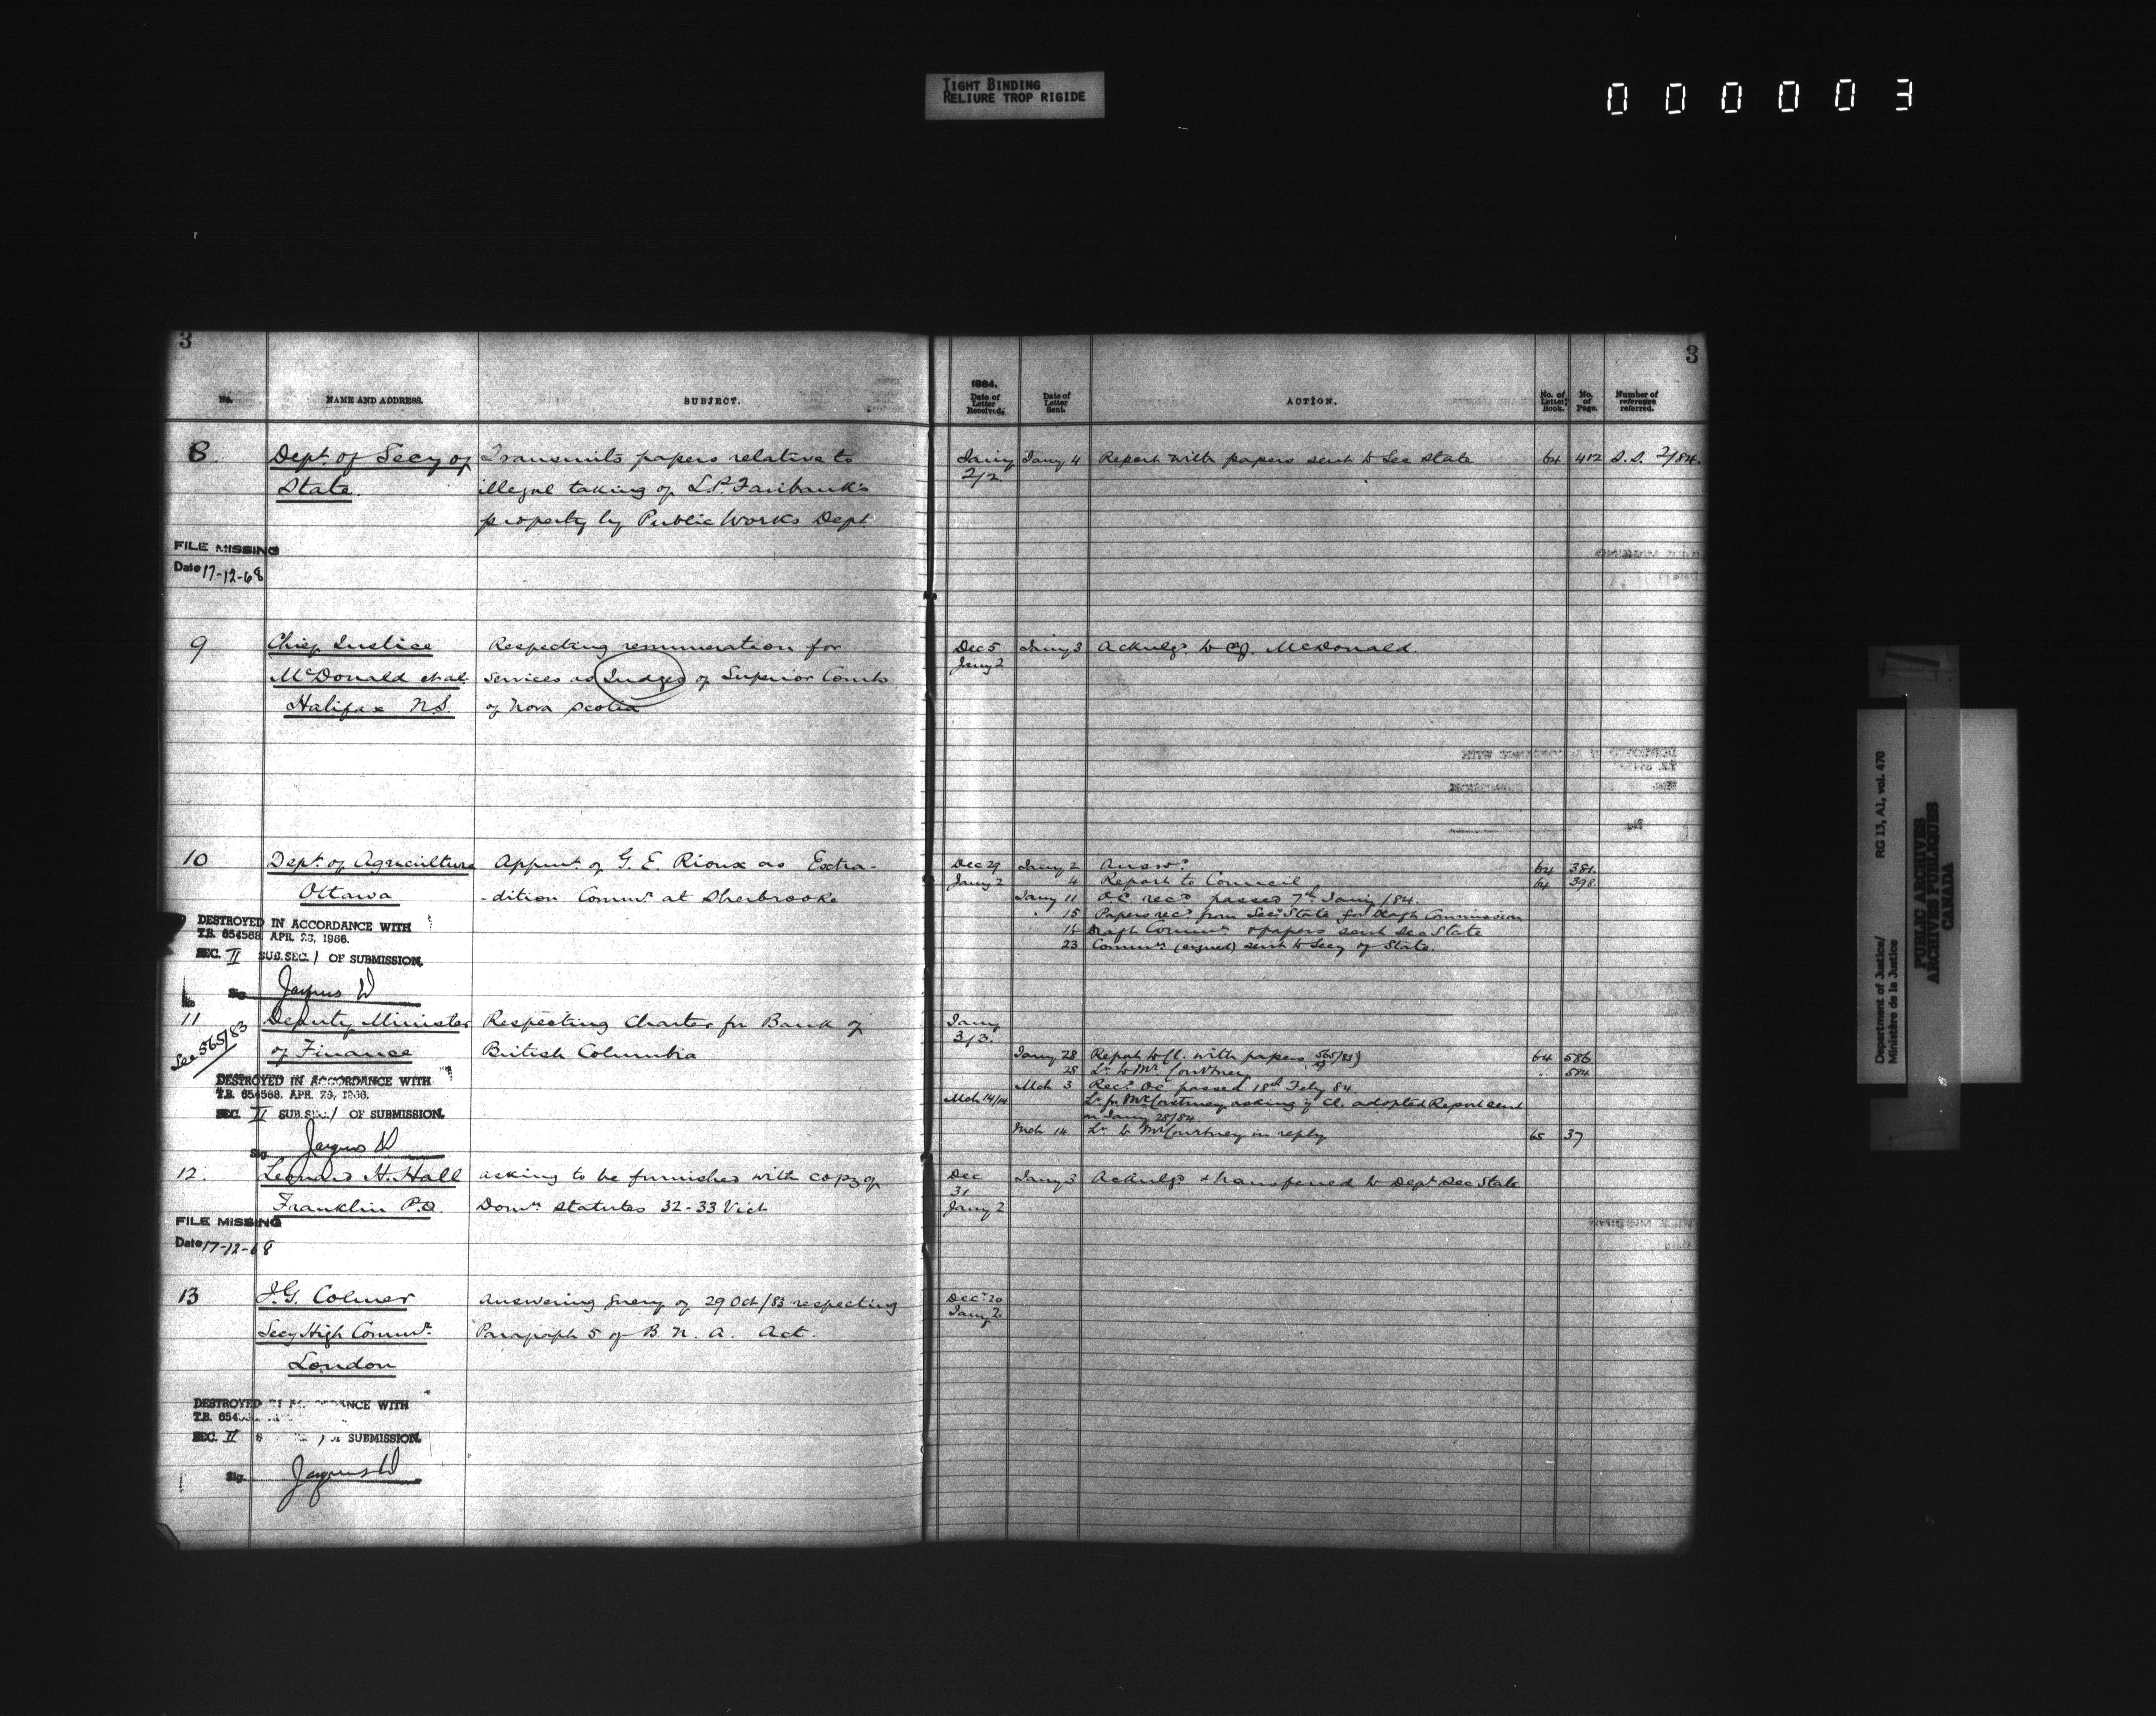 TIGHT BINDING
RELIURE TROP RIGIDE
000003
3
No. NAME AND ADDRESS. SUBJECT.
8. Dept. of Secy of Transmits papers relative to
State illegal taking of L.P. Fairbank's
property by Public Works Dept
FILE MISSING
Date 17-12-68
9 Chief Justice Respecting remuneration for
McDonald et al services as Judges of Superior Courts
Halifax N.S. of Nova Scotia
10 Dept. of Agriculture Appmt. of G. E. Rioux as Extra-
Ottawa -dition Commr at Sherbrooke
DESTROYED IN ACCORDANCE WITH
T.B. 654568 APR. 26, 1966.
SEC. II SUB. SEC. 1 OF SUBMISSION.
Sig
No
11 Deputy Minister Respecting Charter for Bank of
See 565/83
of Finance British Columbia
DESTROYED IN ACCORDANCE WITH
T.B. 654568. APR. 26, 1966.
SEC. II SUB. SEC. 1 OF SUBMISSION.
Sig.
12. Leonard H. Hall asking to be furnished with copy of
Franklin P.Q. Domn Statutes 32-33 Vict
FILE MISSING
Date 17-12-68
13 J.G. Colmer Answering query of 29 Oct/83 respecting
Secy High Commr. Paragraph 5 of B. N. A. Act.
London
DESTROYED ACCORDANCE WITH
T.B. 654
SEC. II SUBMISSION.
Sig
3
1884.
Date of Letter Received. Date of Letter Sent. ACTION. No. of Letter Book. No. of Page. Number of reference referred.
Jany Jany 4 Report with papers sent to Sec State 64 412 S.S. 2/84.
2/2
Dec 5 Jany 3 Acknlgd. to CJ. McDonald.
Jany 2
Dec 29 Jany 2 Answd. 64 381.
Jany 2 4 Report to Council 64 398.
Jany 11 O.C. recd passed 7th Jany /84.
" 15 Papers recd from Secy State for Draft Commission
16 Draft Commn & papers sent Sec State
23 Commn (signed) sent to Secy of State.
Jany
3/3.
Jany 28 Report to Cl. with papers 565/83) 64 586
28 Lr to Mr Courtney " 584
Mch 3 Recd OC passed 18th Feby 84
Mch 14/14 Lr fr Mr Courtney asking if Cl. adopted Report sent
on Jany 28/84.
Mch 14 Lr to Mr Courtney in reply 65 37
Dec Jany 3 Acknlgd & transferred to Dept Sec State
31
Jany 2
Decr 20
Jany 2
Department of Justice/ RG 13, A1, vol. 470
Ministère de la Justice
PUBLIC ARCHIVES
ARCHIVES PUBLIQUES
CANADA